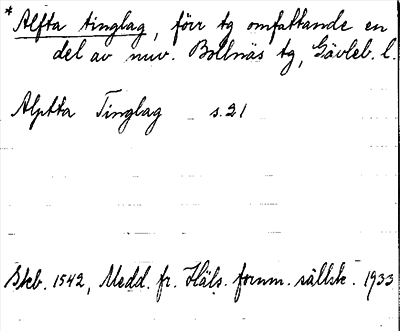 * Alfta tinglag, förr tg omfattande en
del av nuv. Bollnäs tg, Gävleb. l.
Alptta Tinglag s. 21
Skeb. 1542, Medd. fr. Häls. fornm. sällsk. 1933